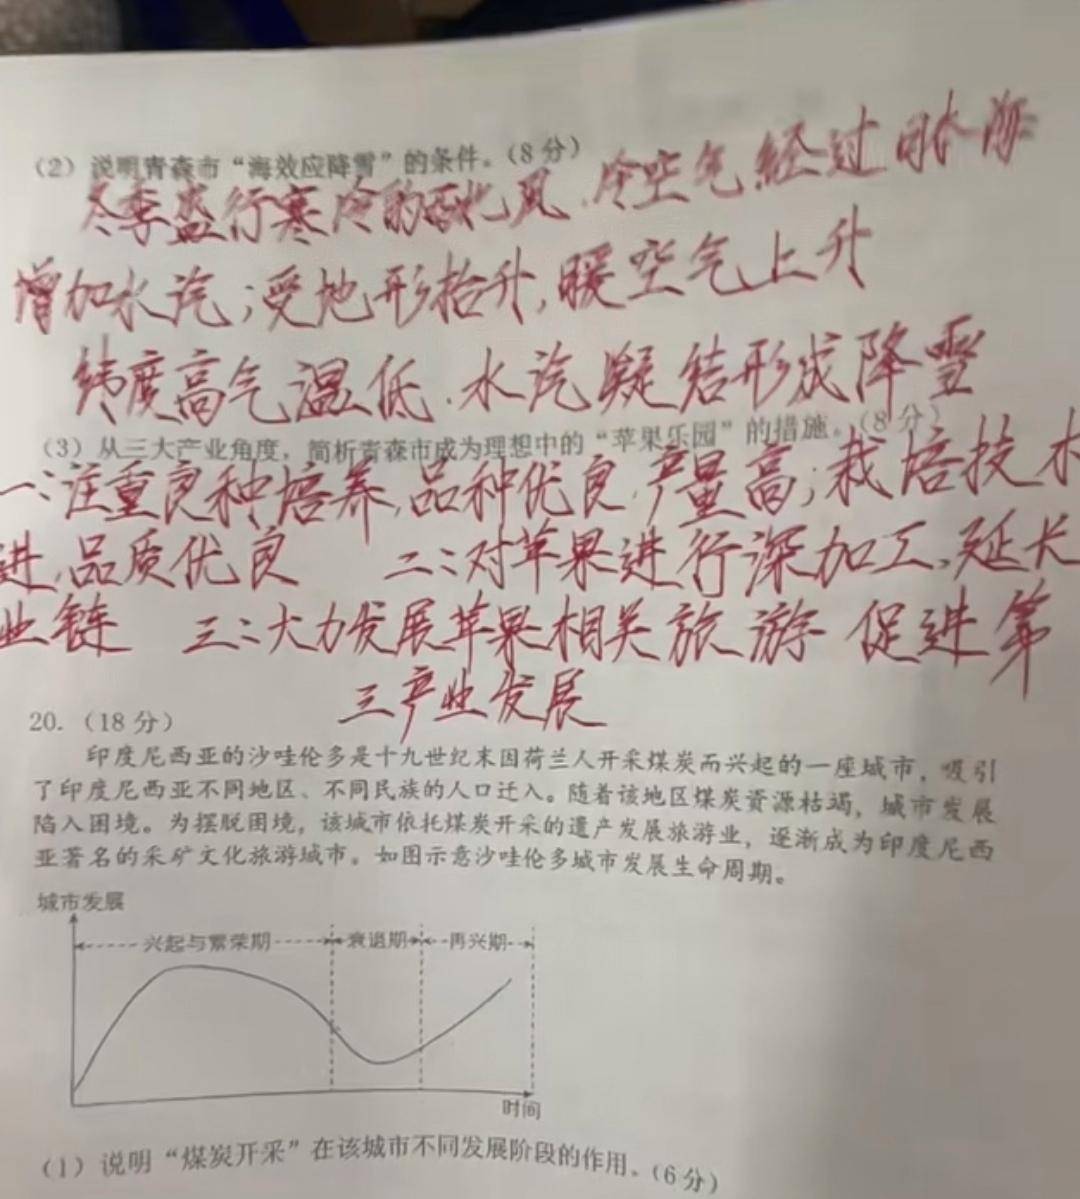 （2）说明青森市“海效应降雪”的条件。（8分）
冬季盛行寒冷的西北风，冷空气经过日本海
增加水汽；受地形抬升，暖空气上升
纬度高气温低．水汽凝结形成降雪
（3）从三大产业角度，简析青森市成为理想中的“苹果乐园”的措施。（8分）
一：注重良种培养，品种优良，产量高；栽培技术
进，品质优良 二：对苹果进行深加工，延长
业链 三：大力发展苹果相关旅游 促进第
三产业发展
20.（18分）
印度尼西亚的沙哇伦多是十九世纪末因荷兰人开采煤炭而兴起的一座城市，吸引
了印度尼西亚不同地区、不同民族的人口迁入。随着该地区煤炭资源枯竭，城市发展
陷入困境。为摆脱困境，该城市依托煤炭开采的遗产发展旅游业，逐渐成为印度尼西
亚著名的采矿文化旅游城市。如图示意沙哇伦多城市发展生命周期。
城市发展
兴起与繁荣期 衰退期 再兴期
时间
（1）说明“煤炭开采”在该城市不同发展阶段的作用。（6分）